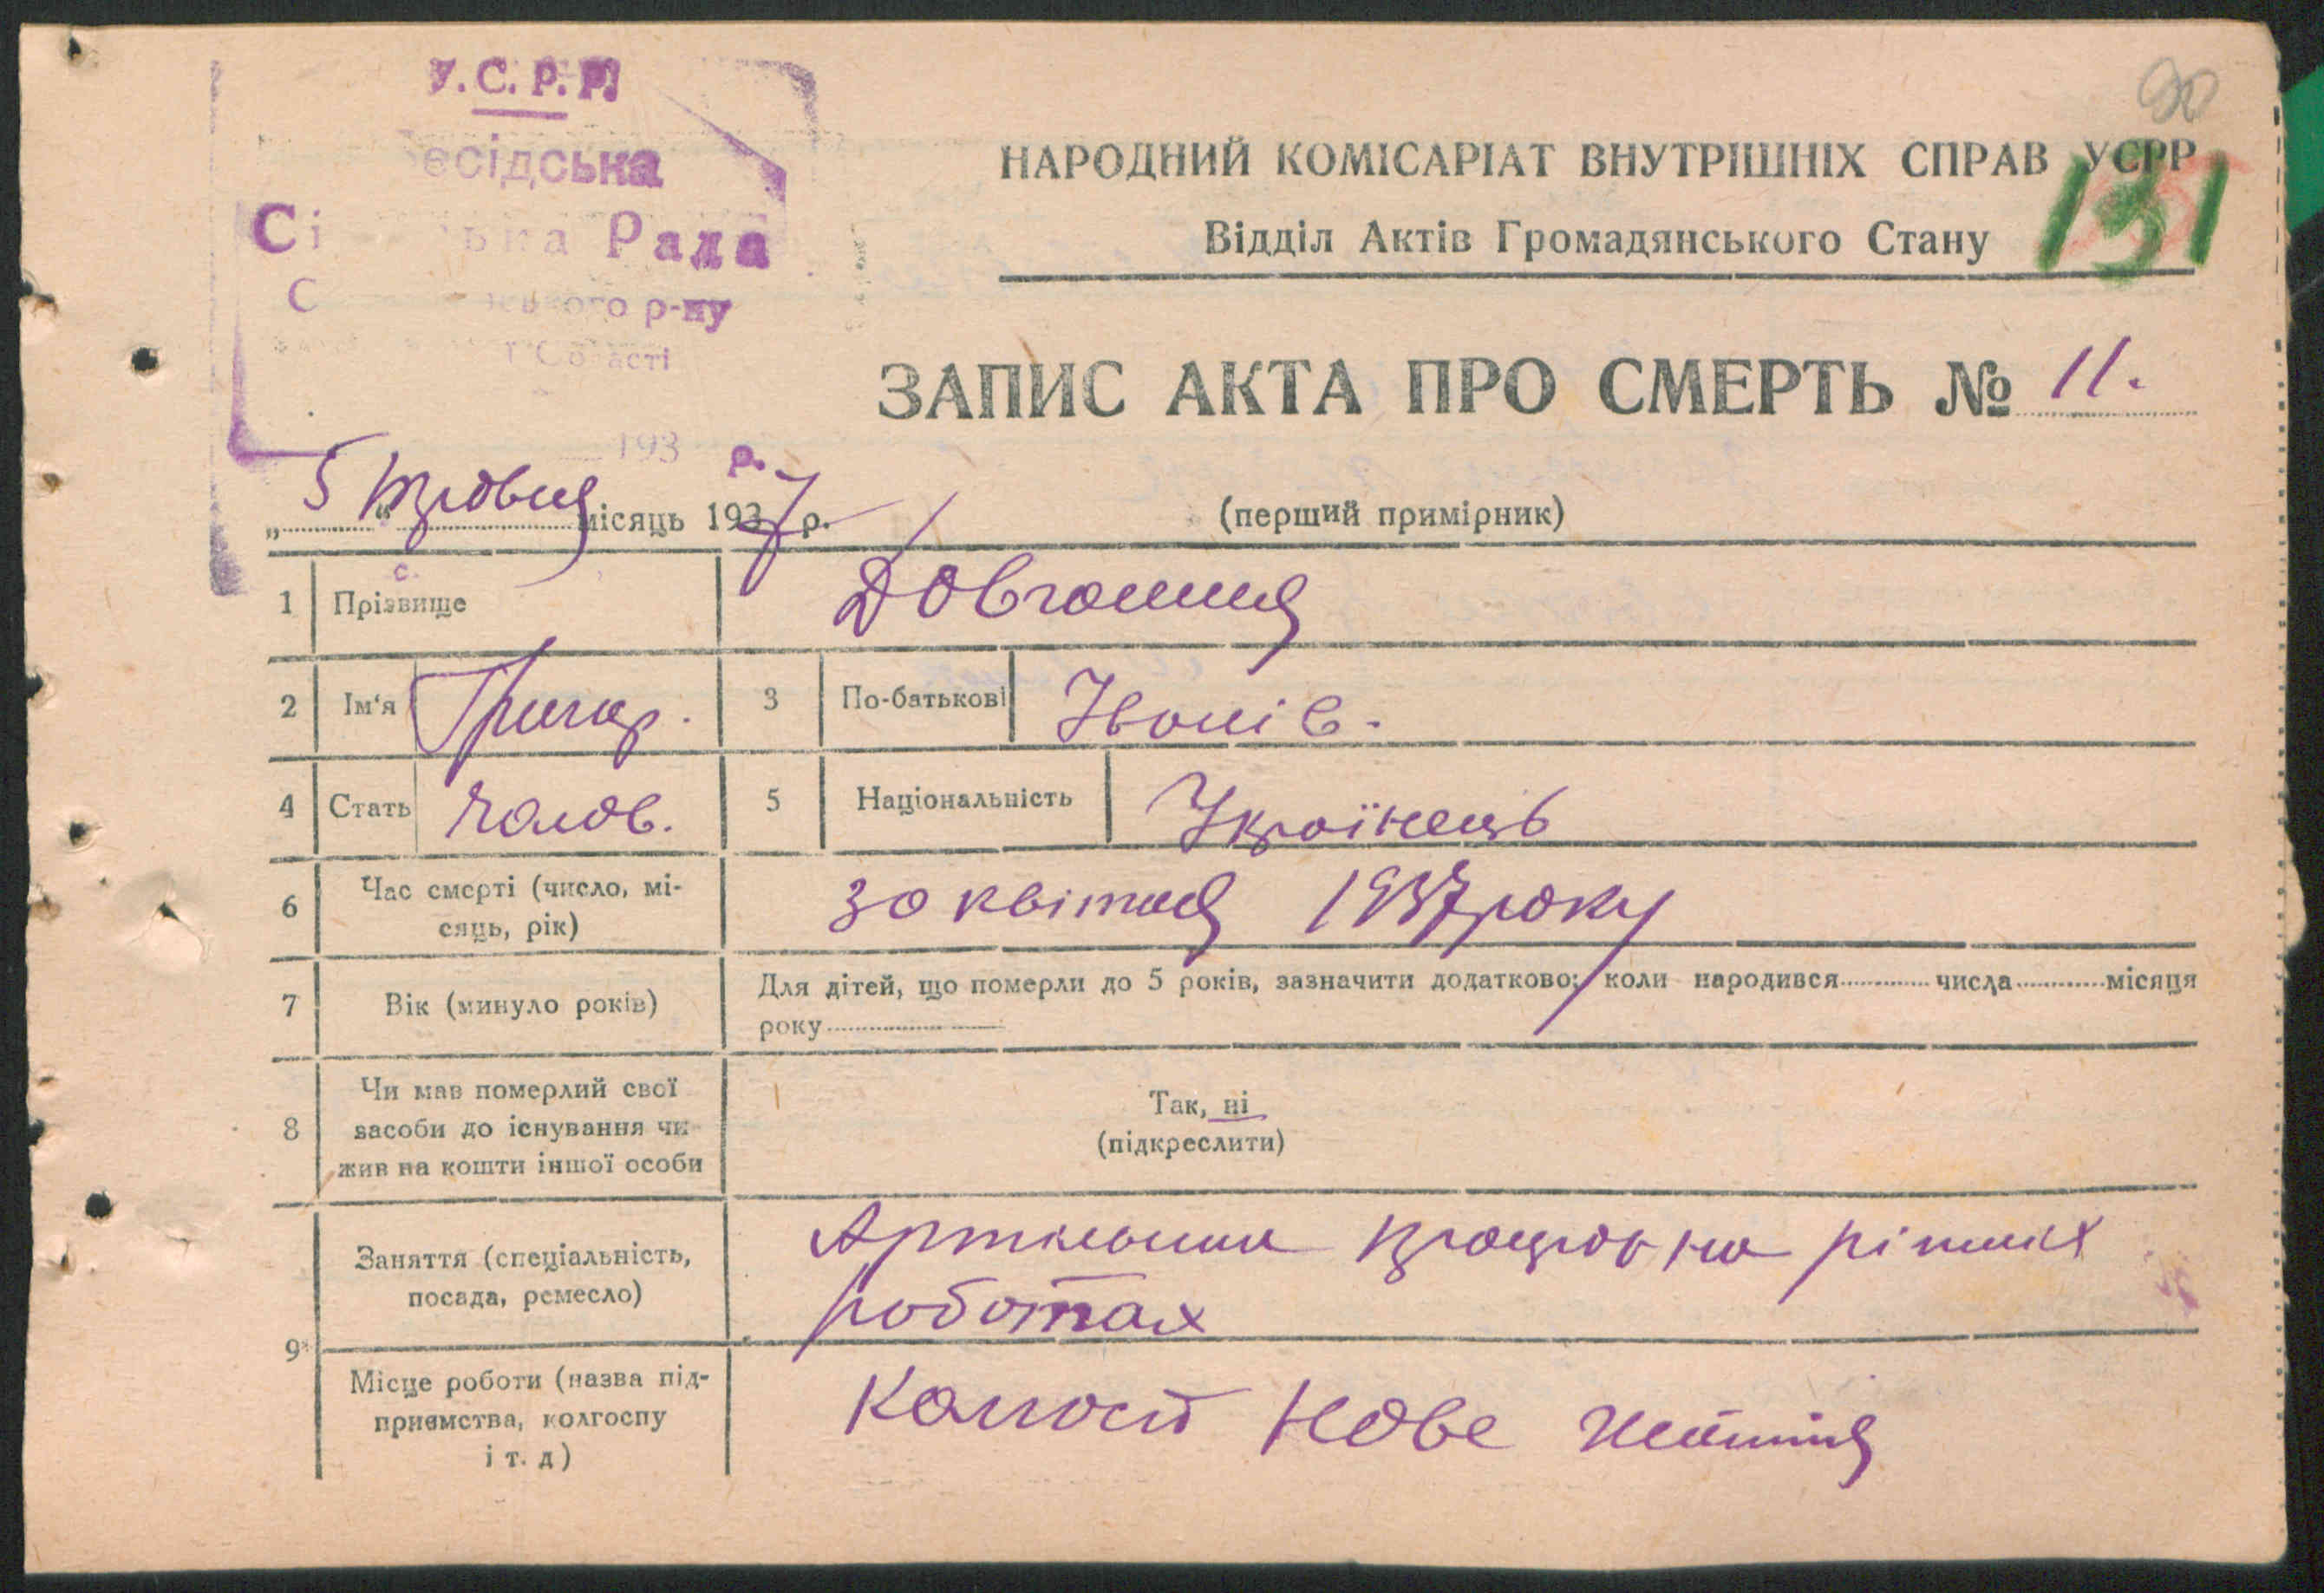 У.С.Р.Р.
есідська
Рада
р-ну
193 р.
90
НАРОДНИЙ КОМІСАРІАТ ВНУТРІШНІХ СПРАВ УСРР
131
Відділ Актів Громадянського Стану
ЗАПИС АКТА ПРО СМЕРТЬ № 11.
„5“ травня місяць 1937 р.
(перший примірник)
1 Прізвище
2 Ім'я Григор. 3 По-батькові Іванів.
4 Стать чолов. 5 Національність Українець
6 Час смерті (число, мі-
сяць, рік) 30 квітня 1937 року
7 Вік (минуло років) Для дітей, що померли до 5 років, зазначити додатково: коли народився числа місяця
року
8 Чи мав померлий свої
засоби до існування чи
жив на кошти іншої особи
Так, ні
(підкреслити)
9 Заняття (спеціальність,
посада, ремесло)
роботах
Місце роботи (назва під-
приємства, колгоспу
і т. д)
Колгосп Нове Життя